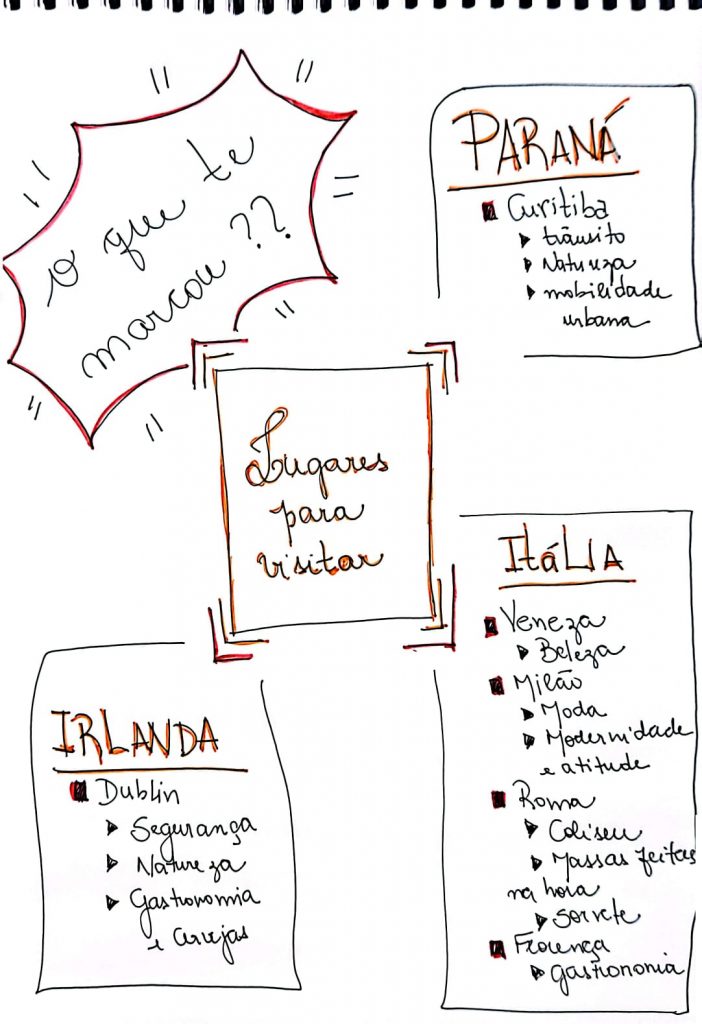 o que te
marcou ??
PARANÁ
Curitiba
trânsito
Natureza
mobilidade
urbana
Lugares
para
visitar
ItáLIA
Veneza
Beleza
Milão
Moda
Modernidade
e atitude
Roma
Coliseu
Massas feitas
na hora
Sorvete
Florença
gastronomia
IRLANDA
Dublin
Segurança
Natureza
Gastronomia
e cervejas